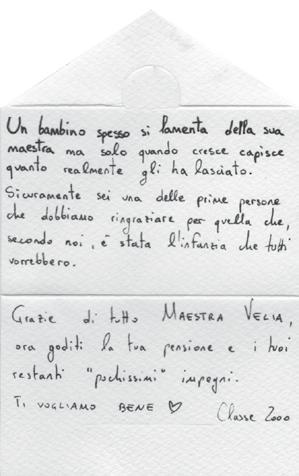 Un bambino spesso si lamenta della sua
maestra ma solo quando cresce capisce
quanto realmente gli ha lasciato.
Sicuramente sei una delle prime persone
che dobbiamo ringraziare per quella che,
secondo noi, è stata l'infanzia che tutti
vorrebbero.
Grazie di tutto MAESTRA VELIA,
ora goditi la tua pensione e i tuoi
restanti "pochissimi" impegni.
TI VOGLIAMO BENE ♡
Classe 2000